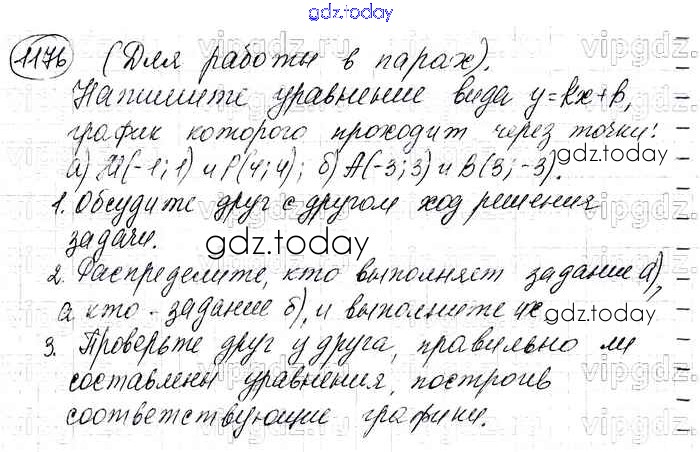 gdz.today
1176 (Для работы в парах).
Напишите уравнение вида y=kx+b,
график которого проходит через точки:
а) М(-1; 1) и Р(4; 4); б) А(-3; 3) и В(3; -3).
gdz.today
1. Обсудите друг с другом ход решения
задачи.
gdz.today
2. Распределите, кто выполняет задание а),
а кто - задание б), и выполните их
gdz.today
3. Проверьте друг у друга, правильно ли
составлены уравнения, построив
соответствующие графики.